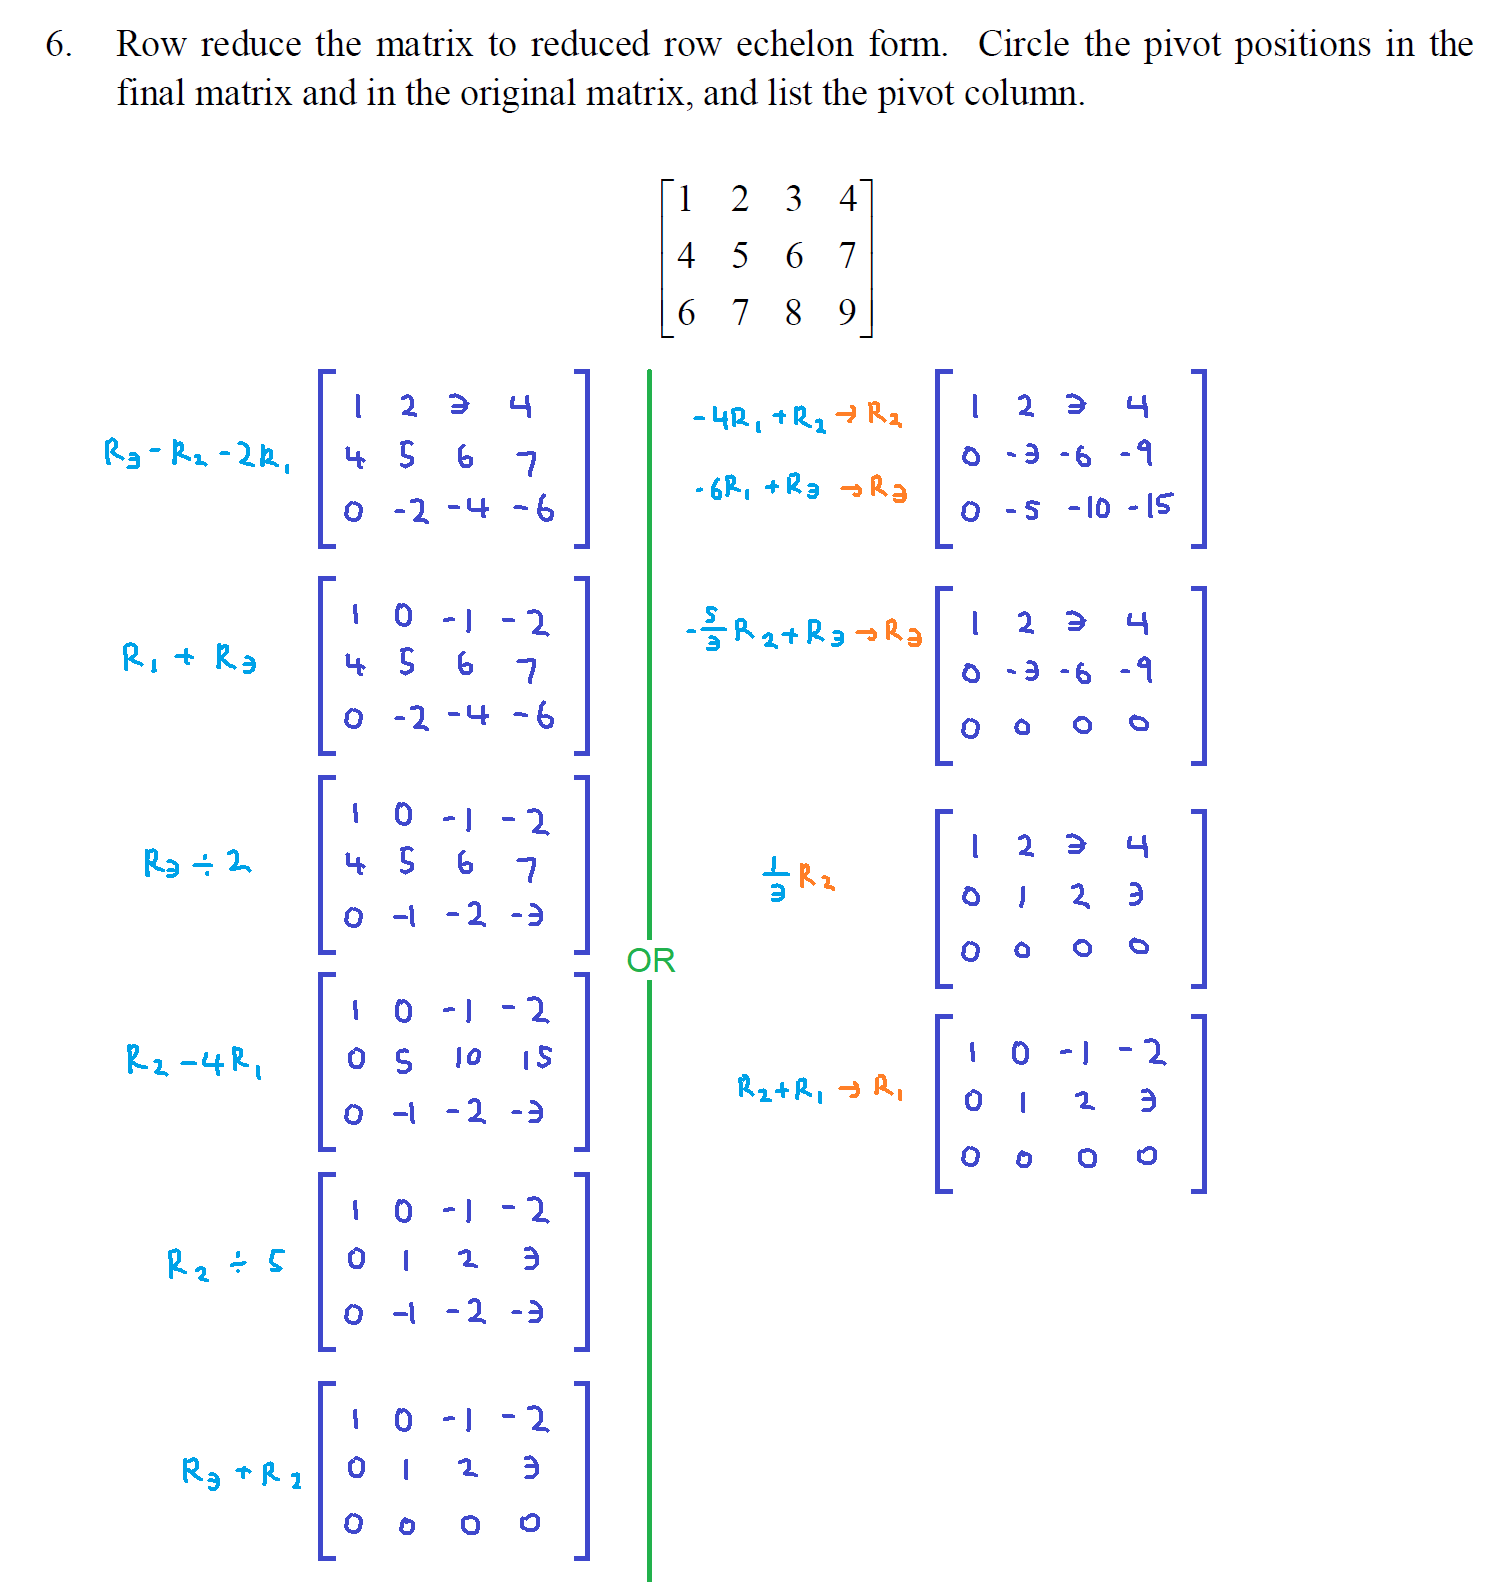 6. Row reduce the matrix to reduced row echelon form. Circle the pivot positions in the
final matrix and in the original matrix, and list the pivot column.
1 2 3 4
4 5 6 7
6 7 8 9
R₃ - R₂ - 2R₁
1 2 3 4
4 5 6 7
0 -2 -4 -6
R₁ + R₃
1 0 -1 -2
4 5 6 7
0 -2 -4 -6
R₃ ÷ 2
1 0 -1 -2
4 5 6 7
0 -1 -2 -3
R₂ - 4R₁
1 0 -1 -2
0 5 10 15
0 -1 -2 -3
R₂ ÷ 5
1 0 -1 -2
0 1 2 3
0 -1 -2 -3
R₃ + R₂
1 0 -1 -2
0 1 2 3
0 0 0 0
OR
-4R₁ + R₂ → R₂
-6R₁ + R₃ → R₃
1 2 3 4
0 -3 -6 -9
0 -5 -10 -15
-5/3 R₂ + R₃ → R₃
1 2 3 4
0 -3 -6 -9
0 0 0 0
1/3 R₂
1 2 3 4
0 1 2 3
0 0 0 0
R₂ + R₁ → R₁
1 0 -1 -2
0 1 2 3
0 0 0 0